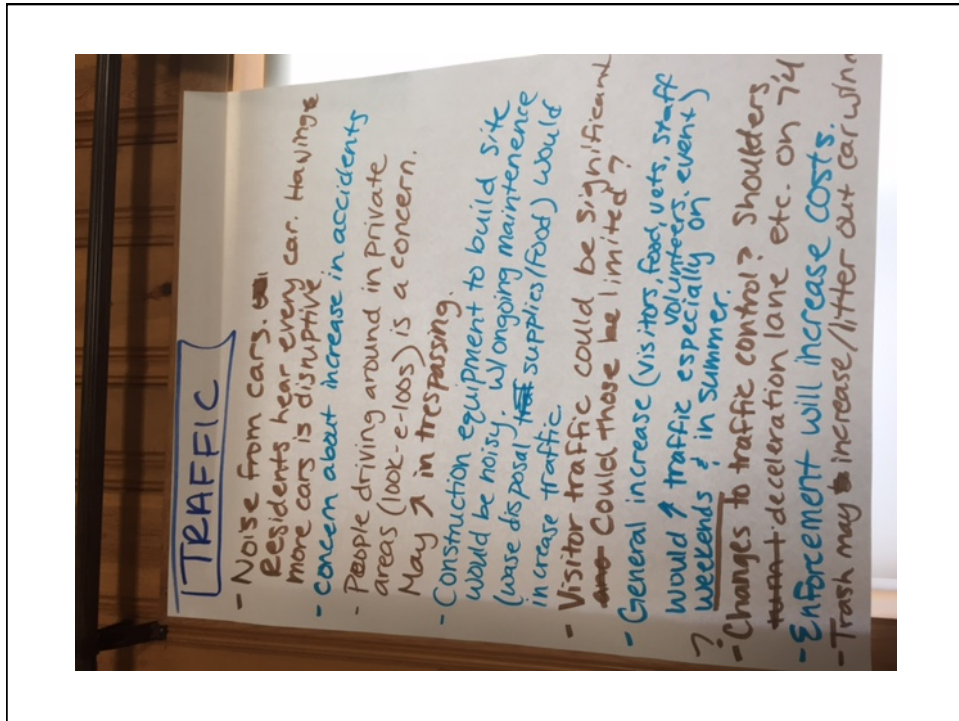 TRAFFIC
- Noise from cars.
Residents hear every car. Having
more cars is disruptive
- concern about increase in accidents
- People driving around in private
areas (look-e-loos) is a concern.
May ↑ in trespassing.
- Construction equipment to build site
would be noisy. w/ongoing maintenence
(wase disposal supplies/food) would
in crease traffic
- Visitor traffic could be significant
Could those be limited?
- General increase (visitors, food, vets, staff
volunteers, event)
would ↑ traffic especially on
weekends & in summer.
?
- Changes to traffic control? Shoulders
deceleration lane etc. on 74
- Enforcement will increase costs.
- Trash may increase/litter out car window